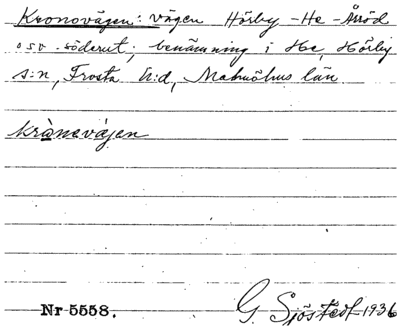 Kronovägen: vägen Hörby - He - Äsröd
osv. söderut; benämning i He, Hörby
s:n, Frosta h:d, Malmöhus län
krànevájen
Nr 5558. G. Sjöstedt 1936